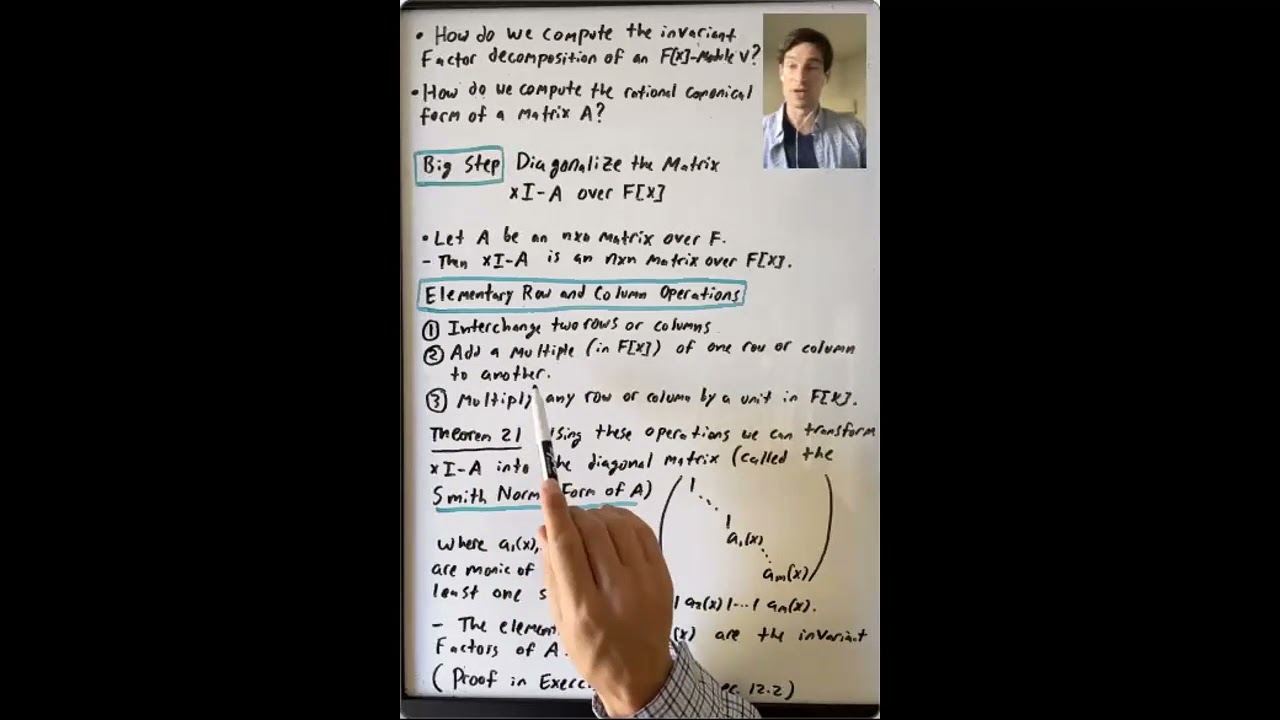 • How do we compute the invariant
Factor decomposition of an F[x]-Module V?
• How do we compute the rational canonical
form of a matrix A?
Big Step Diagonalize the Matrix
xI-A over F[x]
• Let A be an nxn Matrix over F.
- Then xI-A is an nxn Matrix over F[x].
Elementary Row and Column Operations
① Interchange two rows or columns
② Add a Multiple (in F[x]) of one row or column
to another.
③ Multiply any row or column by a unit in F[x].
Theorem 21 Using these operations we can transform
xI-A into the diagonal matrix (called the
Smith Normal Form of A)
1
⋱
1
a₁(x)
⋱
aₘ(x)
Where a₁(x),
are monic of
least one s
| a₂(x) |...| aₘ(x).
- The elemen (x) are the invariant
Factors of A.
(Proof in Exerci ec. 12.2)